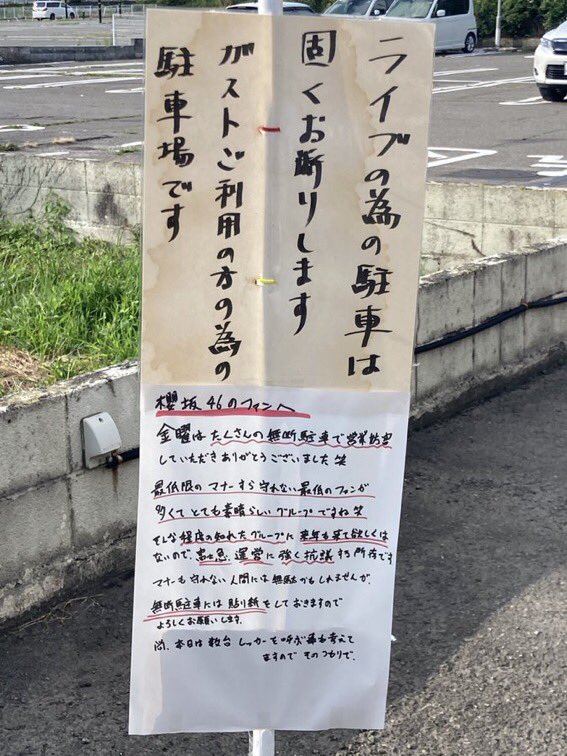 ライブの為の駐車は
固くお断りします
ガストご利用の方の為の
駐車場です
櫻坂46のファンへ
金曜はたくさんの無断駐車で営業妨害
していただきありがとうございました笑
最低限のマナーすら守れない最低のファンが
多くてとても素晴らしいグループですね笑
そんな程度の知れたグループに来年も来て欲しくは
ないので、富士急、運営に強く抗議する所存です
マナーも守れない人間には無駄かもしれませんが、
無断駐車には貼り紙をしておきますので
よろしくお願いします。
尚、本日は数台レッカーを呼ぶ事も考えて
ますのでそのつもりで。